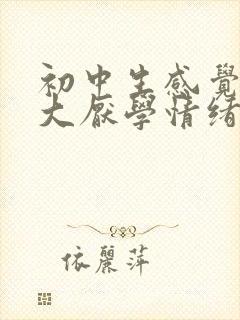 初中生感覺
大厭學情緒
依麗萍